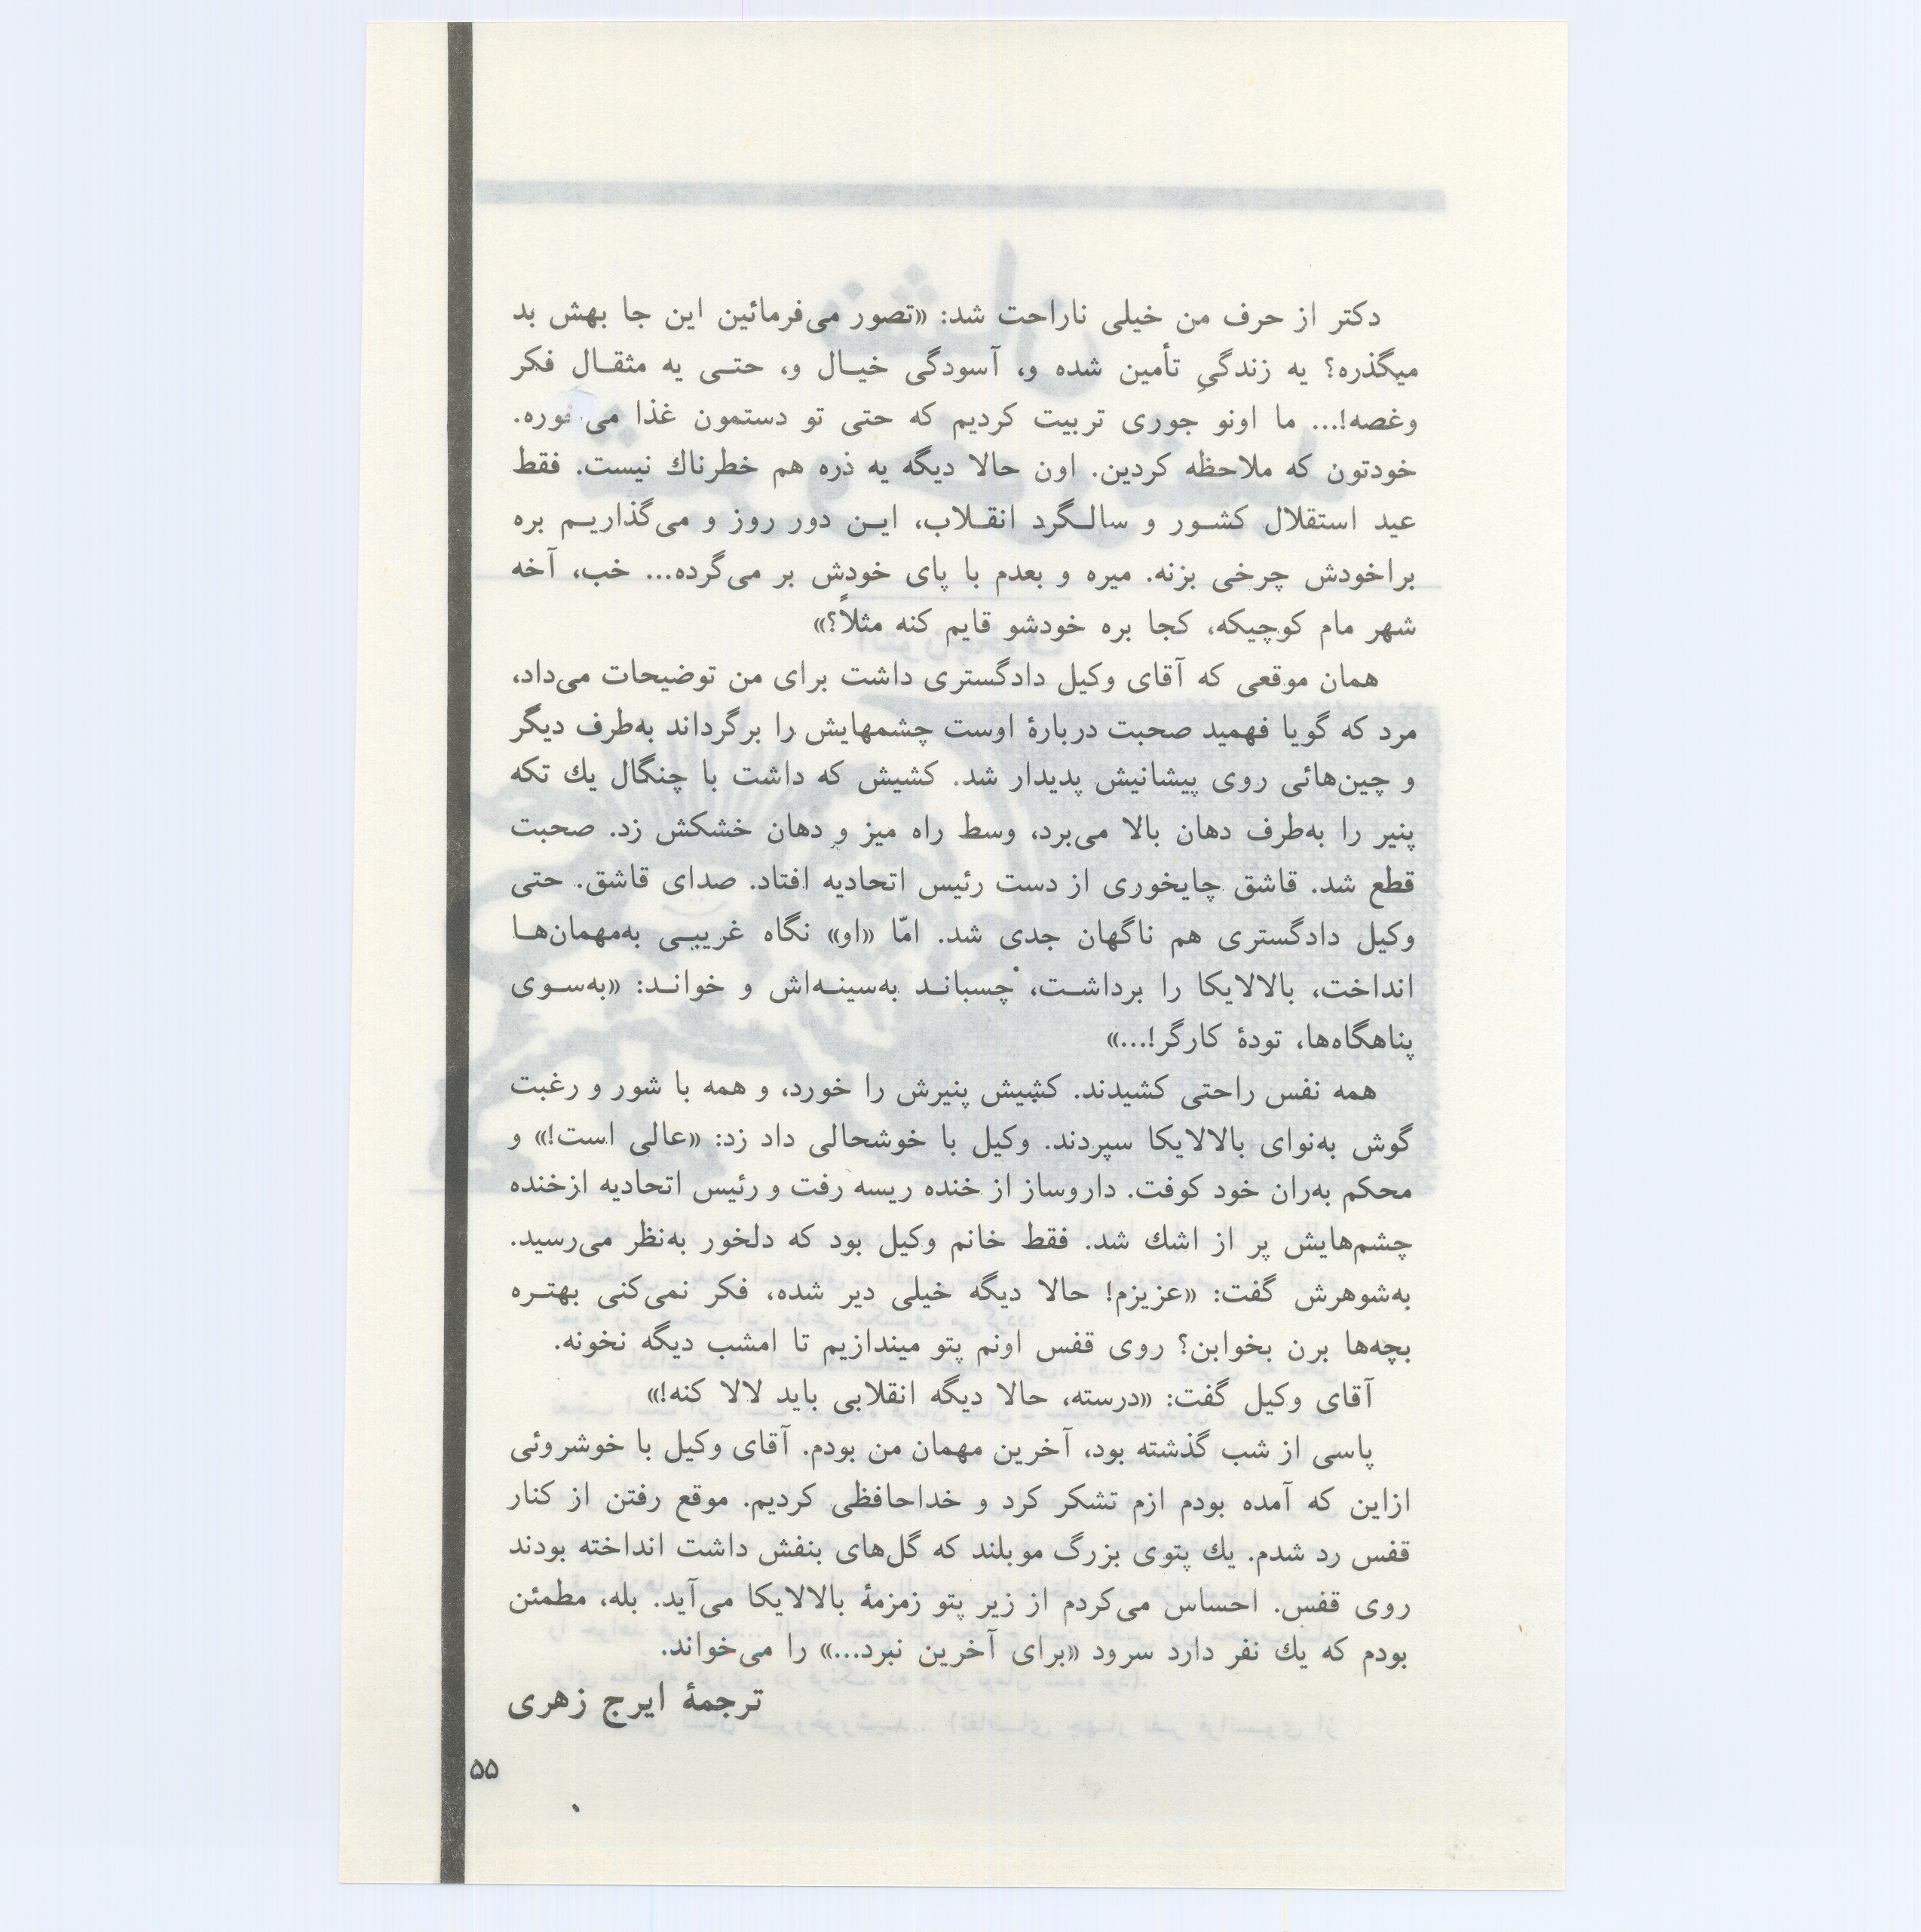 دکتر از حرف من خیلی ناراحت شد: «تصور می‌فرمائین این جا بهش بد
میگذره؟ یه زندگیِ تأمین شده و، آسودگی خیـال و، حتـی یه مثقـال فکر
وغصه!... ما اونو جوری تربیت کردیم که حتی تو دستمون غذا می‌خوره.
خودتون که ملاحظه کردین. اون حالا دیگه یه ذره هم خطرناك نیست. فقط
عید استقلال کشـور و سالـگرد انقـلاب، ایـن دور روز و می‌گذاریـم بره
براخودش چرخی بزنه. میره و بعدم با پای خودش بر می‌گرده... خب، آخه
شهر مام کوچیکه، کجا بره خودشو قایم کنه مثلاً؟»
همان موقعی که آقای وکیل دادگستری داشت برای من توضیحات می‌داد،
مرد که گویا فهمید صحبت دربارهٔ اوست چشمهایش را برگرداند به‌طرف دیگر
و چین‌هائی روی پیشانیش پدیدار شد. کشیش که داشت با چنگال یك تکه
پنیر را به‌طرف دهان بالا می‌برد، وسط راه میز و دهان خشکش زد. صحبت
قطع شد. قاشق چایخوری از دست رئیس اتحادیه افتاد. صدای قاشق. حتی
وکیل دادگستری هم ناگهان جدی شد. امّا «او» نگاه غریبـی به‌مهمان‌هـا
انداخت، بالالایکا را برداشـت، چسبانـد به‌سینـه‌اش و خوانـد: «به‌سـوی
پناهگاه‌ها، تودهٔ کارگر!...»
همه نفس راحتی کشیدند. کشیش پنیرش را خورد، و همه با شور و رغبت
گوش به‌نوای بالالایکا سپردند. وکیل با خوشحالی داد زد: «عالی است!» و
محکم به‌ران خود کوفت. داروساز از خنده ریسه رفت و رئیس اتحادیه ازخنده
چشم‌هایش پر از اشك شد. فقط خانم وکیل بود که دلخور به‌نظر می‌رسید.
به‌شوهرش گفت: «عزیزم! حالا دیگه خیلی دیر شده، فکر نمی‌کنی بهتـره
بچه‌ها برن بخوابن؟ روی قفس اونم پتو میندازیم تا امشب دیگه نخونه.
آقای وکیل گفت: «درسته، حالا دیگه انقلابی باید لالا کنه!»
پاسی از شب گذشته بود، آخرین مهمان من بودم. آقای وکیل با خوشروئی
ازاین که آمده بودم ازم تشکر کرد و خداحافظی کردیم. موقع رفتن از کنار
قفس رد شدم. یك پتوی بزرگ موبلند که گل‌های بنفش داشت انداخته بودند
روی قفس. احساس می‌کردم از زیر پتو زمزمهٔ بالالایکا می‌آید. بله، مطمئن
بودم که یك نفر دارد سرود «برای آخرین نبرد...» را می‌خواند.
ترجمهٔ ایرج زهری
۵۵